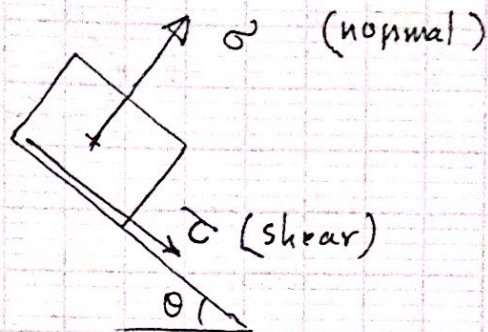 σ (normal)
τ (shear)
θ